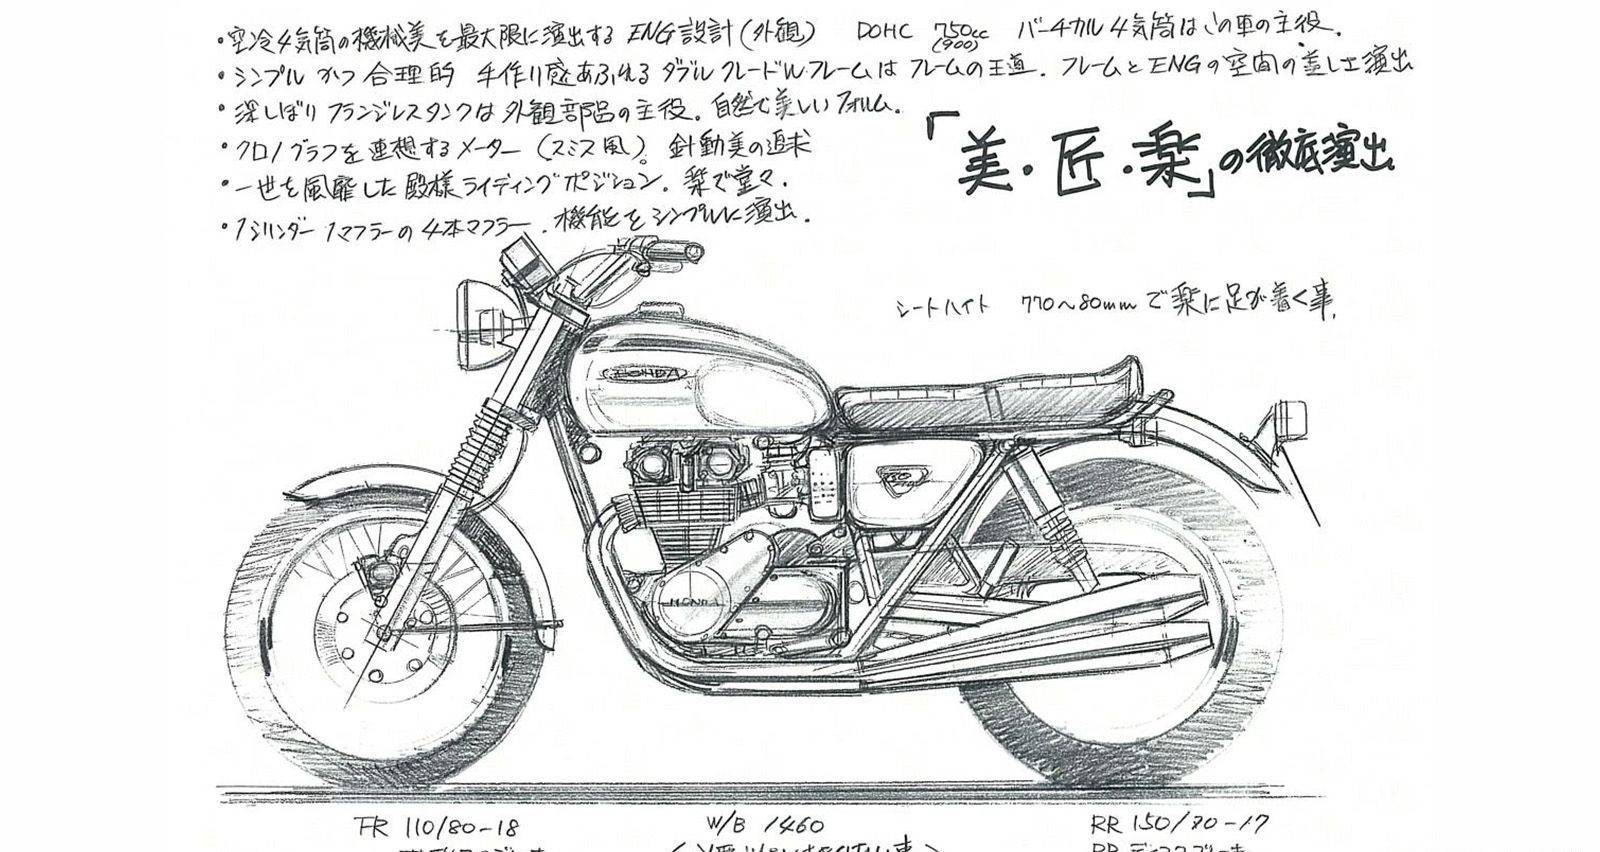 ・空冷4気筒の機械美を最大限に演出する ENG設計(外観) DOHC 750cc バーチカル4気筒はこの車の主役.
(900)
・シンプル かつ 合理的 手作り感あふれる ダブルクレードルフレームは フレームの王道. フレームとENGの空間の美しさ演出
・深しぼり フランジレスタンクは 外観部品の主役. 自然で美しいフォルム.
・クロノグラフを連想するメーター (スミス風). 針動美の追求
・一世を風靡した殿様ライディングポジション. 楽で堂々.
・1シリンダー 1マフラーの4本マフラー. 機能をシンプルに演出.
「美・匠・楽」の徹底演出
シートハイト 770~80mmで楽に足が着く事.
HONDA
750
HONDA
FR 110/80-18
W/B 1460
RR 150/70-17